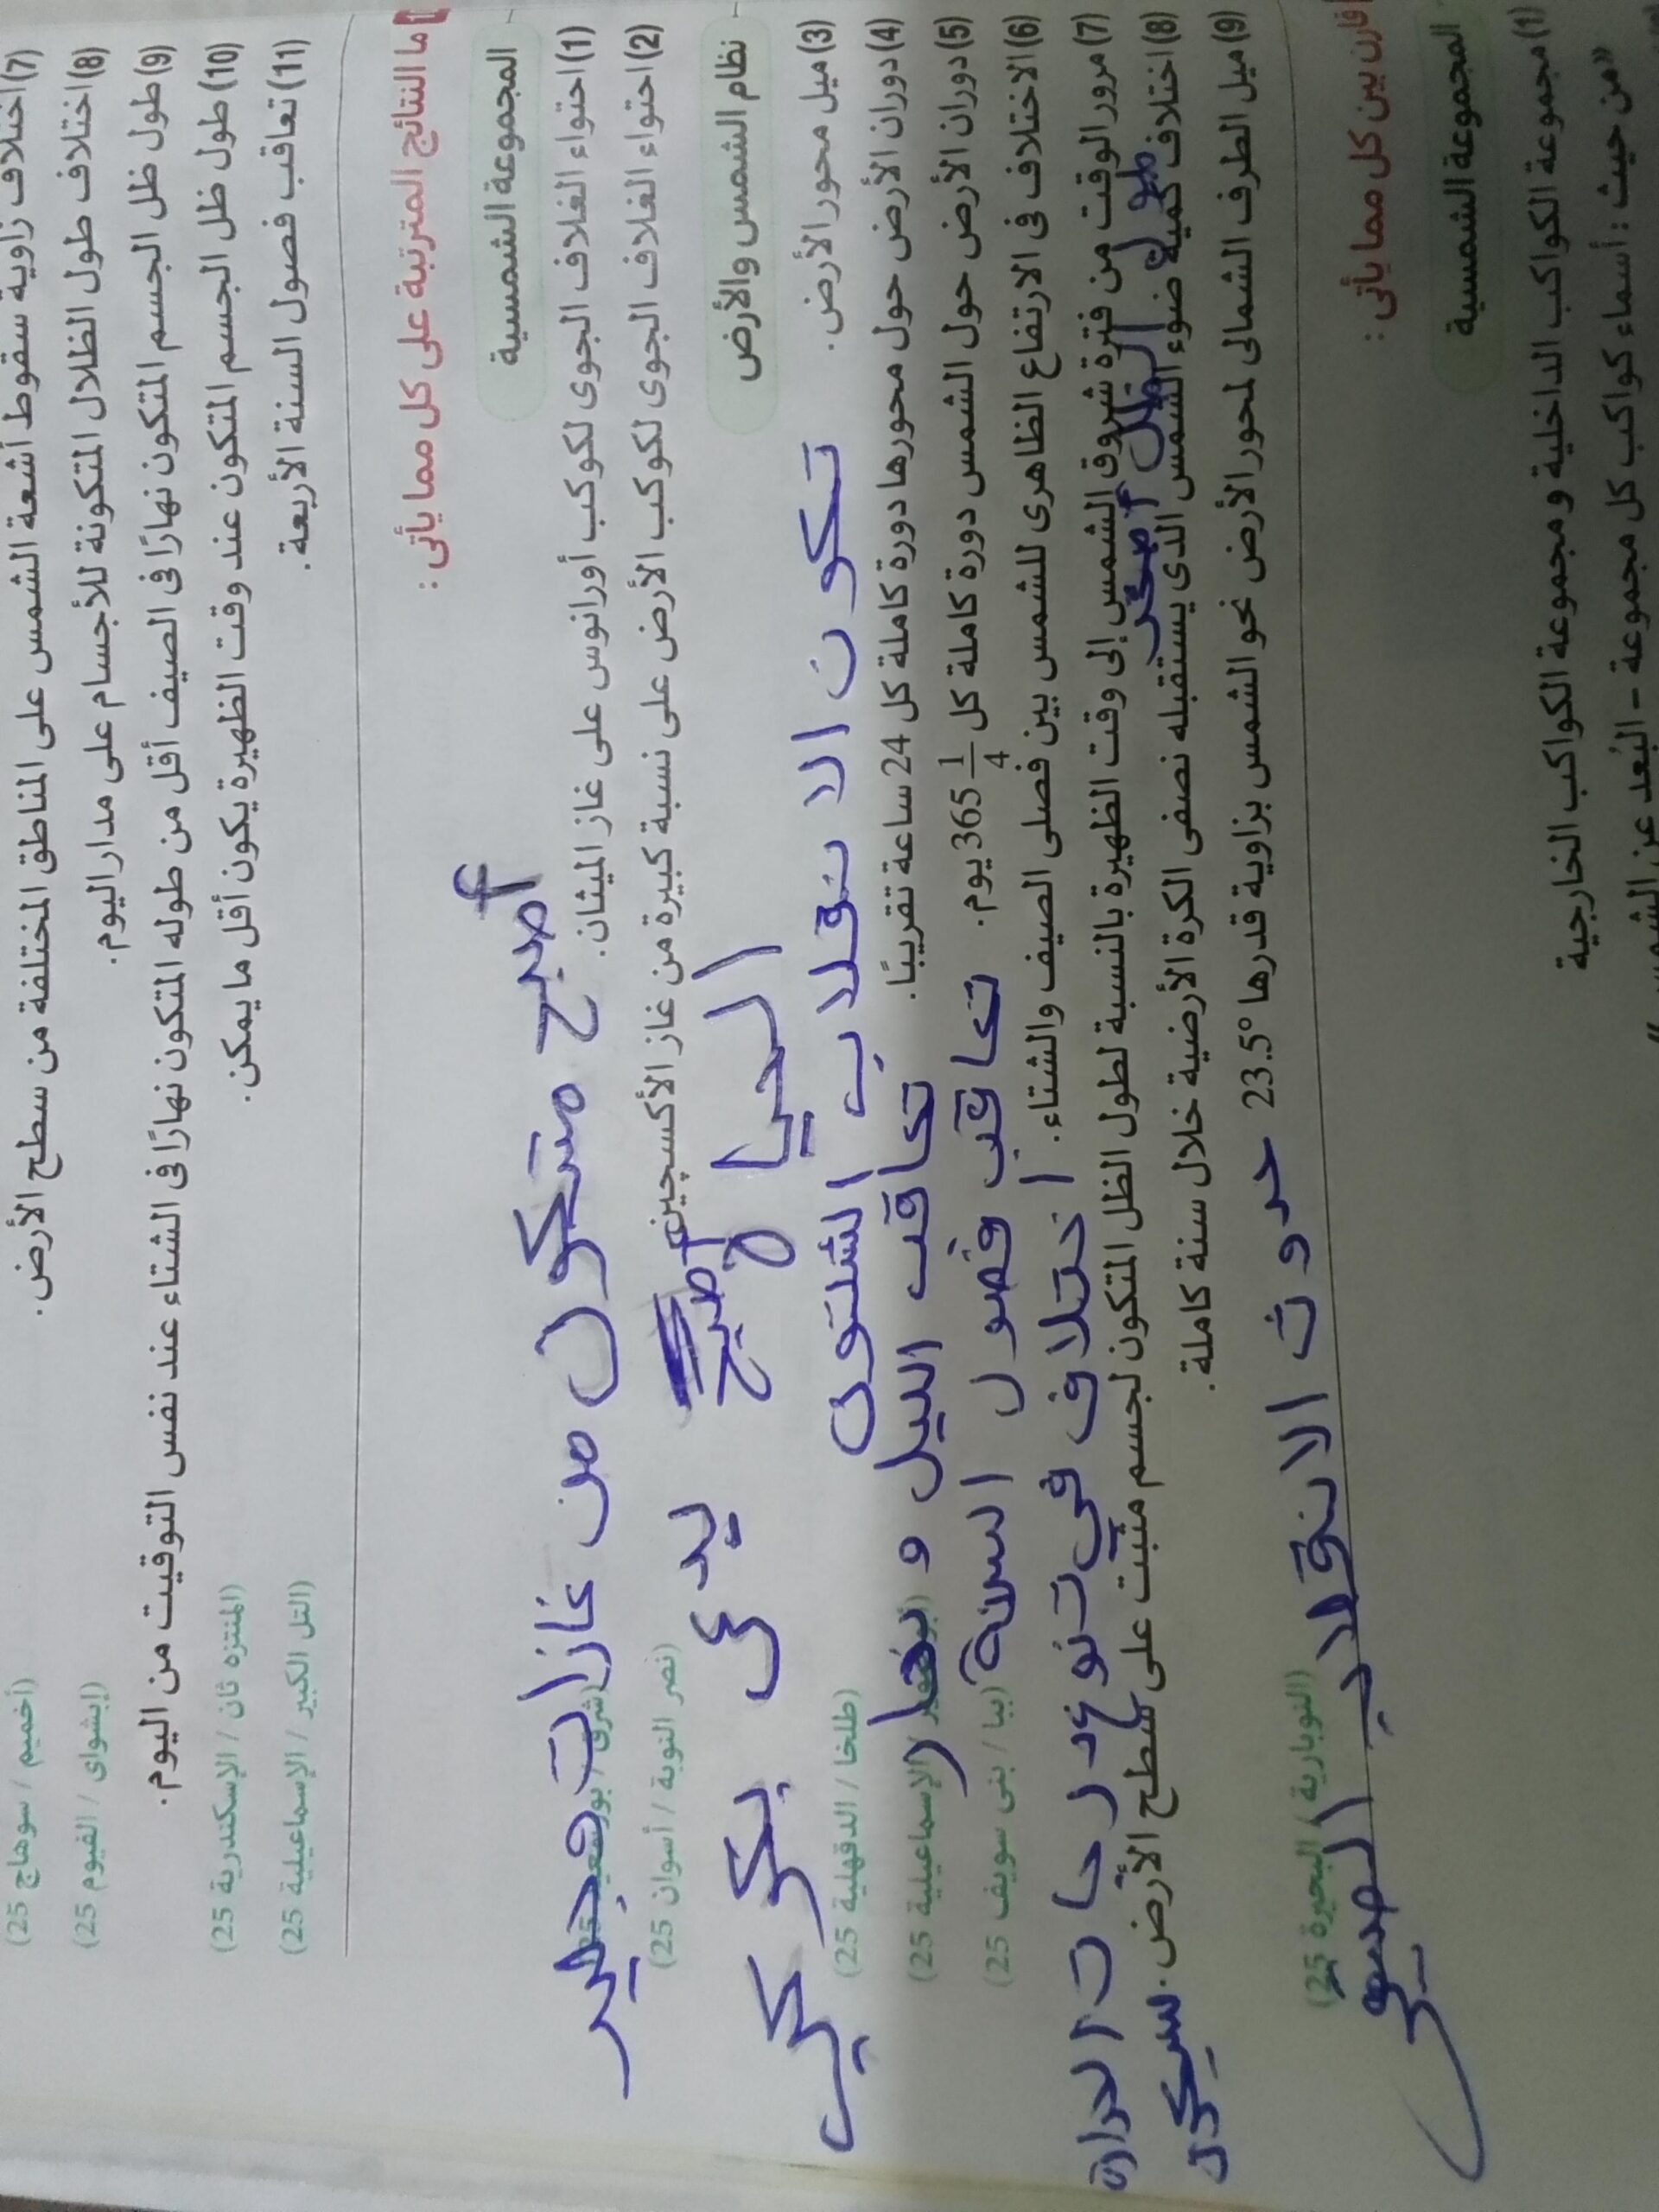 (7) اختلاف زاوية سقوط أشعة الشمس على المناطق المختلفة من سطح الأرض. (أخميم / سوهاج 25)
(8) اختلاف طول الظلال المتكونة للأجسام على مدار اليوم. (إبشواى / الفيوم 25)
(9) طول ظل الجسم المتكون نهارًا فى الصيف أقل من طوله المتكون نهارًا فى الشتاء عند نفس التوقيت من اليوم.
(10) طول ظل الجسم المتكون عند وقت الظهيرة يكون أقل ما يمكن. (المنتزه ثان / الإسكندرية 25)
(11) تعاقب فصول السنة الأربعة. (التل الكبير / الإسماعيلية 25)
ما النتائج المترتبة على كل مما يأتى :
المجموعة الشمسية
(1) احتواء الغلاف الجوى لكوكب أورانوس على غاز الميثان.
أصبح متكون من غازات
(2) احتواء الغلاف الجوى لكوكب الأرض على نسبة كبيرة من غاز الأكسچين. (نصر النوبة / أسوان 25)
أصبح يدعى بكوكب الحياة
نظام الشمس والأرض
(3) ميل محور الأرض. (طلخا / الدقهلية 25)
تكون الانقلاب الشتوى
(4) دوران الأرض حول محورها دورة كاملة كل 24 ساعة تقريبًا. الإسماعيلية 25)
تعاقب الليل و نهار
(5) دوران الأرض حول الشمس دورة كاملة كل 365 1/4 يوم. تعاقب فصول السنة (ببا / بنى سويف 25)
(6) الاختلاف فى الارتفاع الظاهرى للشمس بين فصلى الصيف والشتاء. اختلاف في تنوع درجات الحرارة
(7) مرور الوقت من فترة شروق الشمس إلى وقت الظهيرة بالنسبة لطول الظل المتكون لجسم مثبت على سطح الأرض. سيكون
طول الظل أصغر
(8) اختلاف كمية ضوء الشمس الذى يستقبله نصفى الكرة الأرضية خلال سنة كاملة.
(9) ميل الطرف الشمالى لمحور الأرض نحو الشمس بزاوية قدرها 23.5° (النوبارية / البحيرة 25)
حدوث الانقلاب الصيفي
قارن بين كل مما يأتى :
المجموعة الشمسية
(1) مجموعة الكواكب الداخلية و مجموعة الكواكب الخارجية
«من حيث : أسماء كواكب كل مجموعة – البُعد عن الشمس